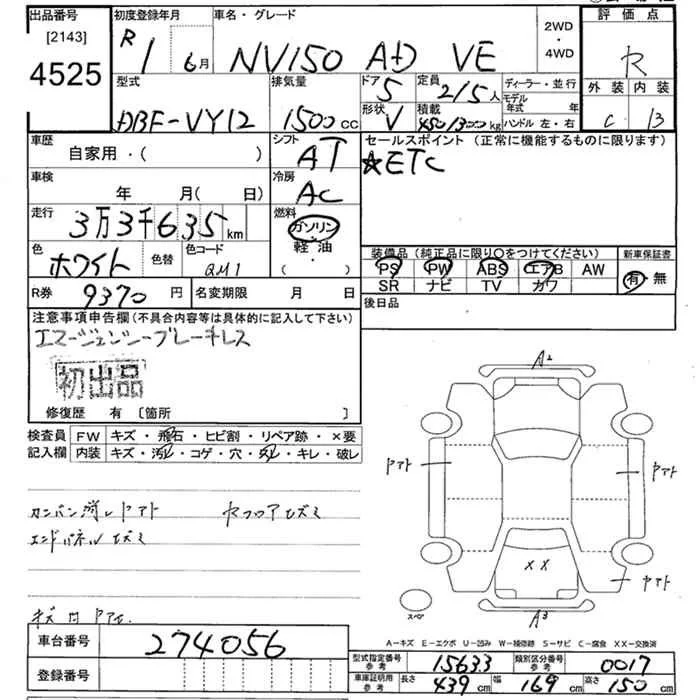 出品番号 初度登録年月 車名・グレード 2WD・4WD 評価点
[2143]
4525
R 1 6月 NV150 AD VE
型式 排気量 ドア 5 定員 2/5人 ディーラー・並行 外装 内装
DBF-VY12 1500cc 形状 V 積載 450/300kg モデル年式 年 ハンドル 左・右 C B
車歴 自家用・( ) シフト AT セールスポイント (正常に機能するものに限ります)
☆ETC
車検 年 月(日) 冷房 AC
走行 3万3千635km 燃料 ガソリン・軽油・( )
色 ホワイト 色替 色コード QM1
装備品 (純正品に限り○をつけてください) 新車保証書
PS PW ABS エアB AW 有・無
SR ナビ TV カワ
R券 9370円 名変期限 月 日 後日品
注意事項申告欄 (不具合内容等は具体的に記入して下さい)
エマージェンシーブレーキレス
初出品
修復歴 有 〔箇所 〕
検査員記入欄 FW キズ・飛石・ヒビ割・リペア跡・×要
内装 キズ・汚レ・コゲ・穴・スレ・キレ・破レ
カンバン消しヤアト セフロアセズミ
エンドパネルセズミ
A2
ヤアト ヤアト
XX
ヤアト
スペア
A3
A-キズ E-エクボ U-凹み W-補修跡 S-サビ C-腐食 XX-交換済
車台番号 274056
登録番号
型式指定番号 参考 15633 類別区分番号 参考 0017
車庫証明用 参考 長さ 439cm 幅 169cm 高さ 150cm